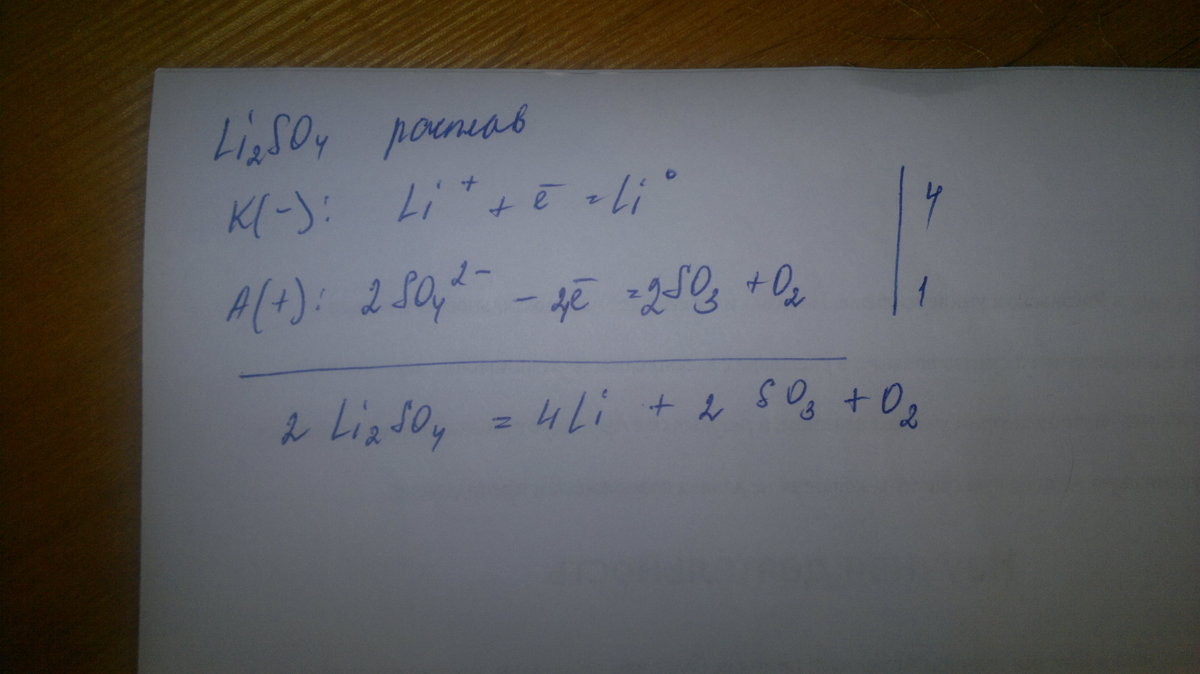 Li₂SO₄ расплав
K(-): Li⁺ + ē = Li⁰ | 4
A(+): 2SO₄²⁻ - 2ē = 2SO₃ + O₂ | 1
2 Li₂SO₄ = 4Li + 2 SO₃ + O₂